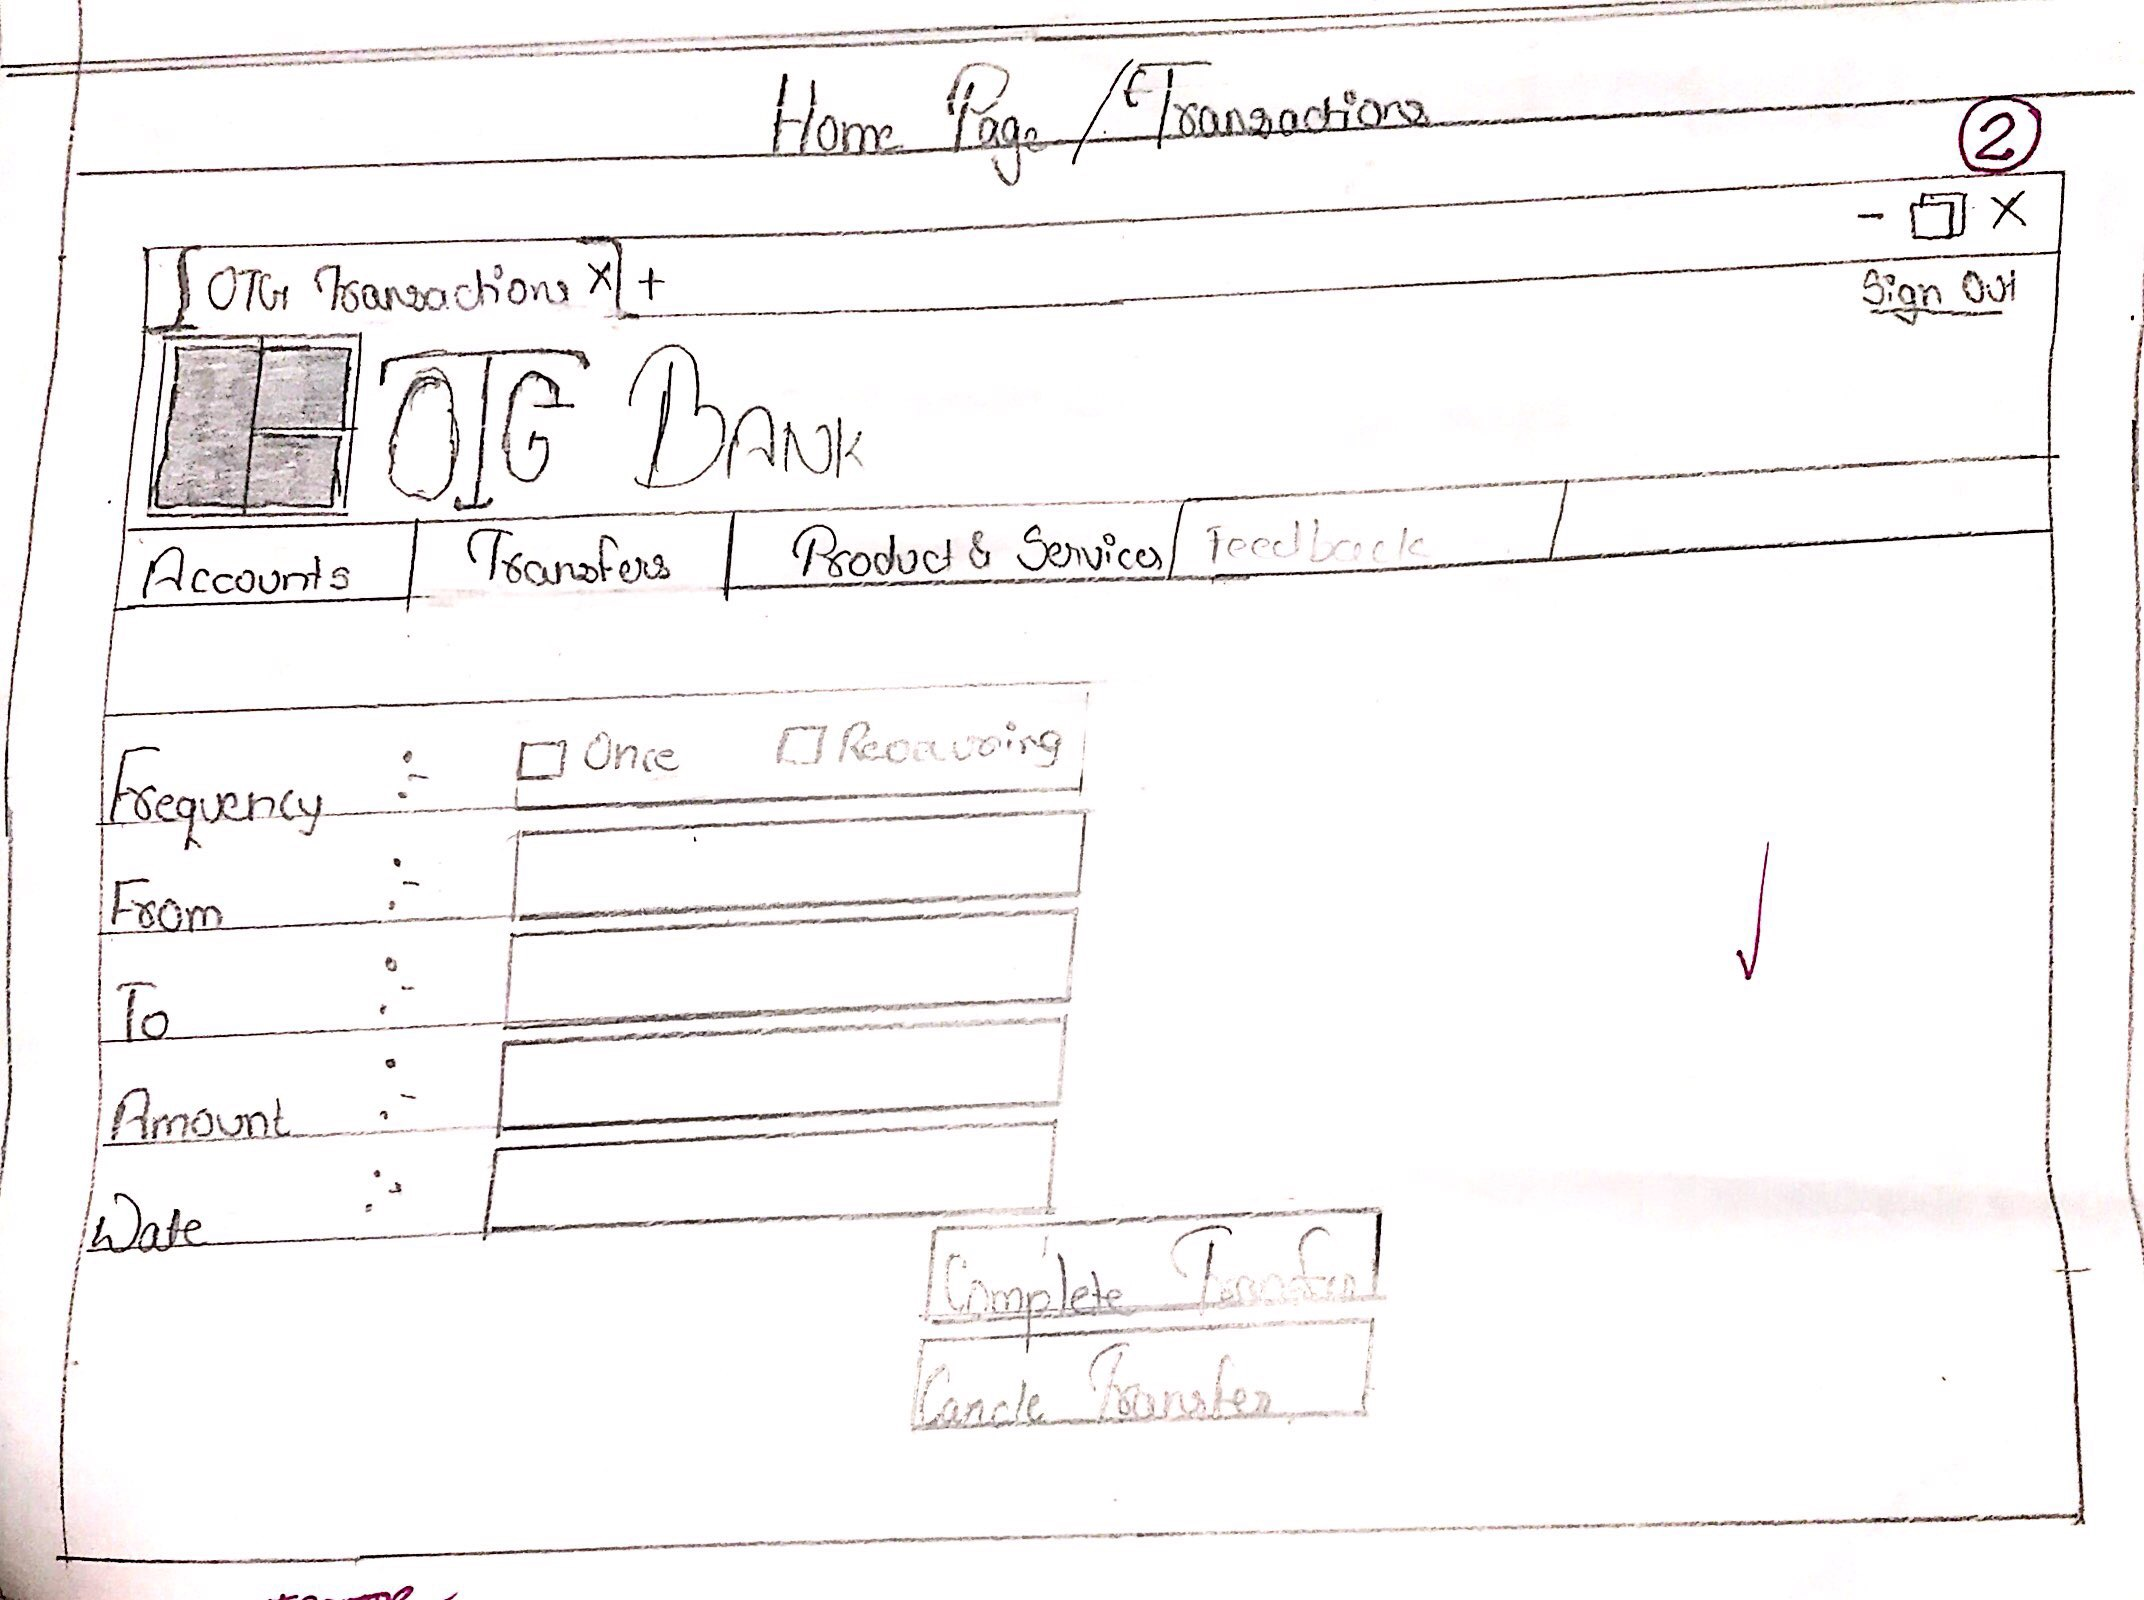 Home Page / Transactions
2
- X
OTG Transactions X +
Sign Out
OTG BANK
Accounts Transfers Product & Services Feedback
Frequency :- Once Recouring
From :-
To :-
Amount :-
Date :-
Complete Transfer
Cancle Transfer